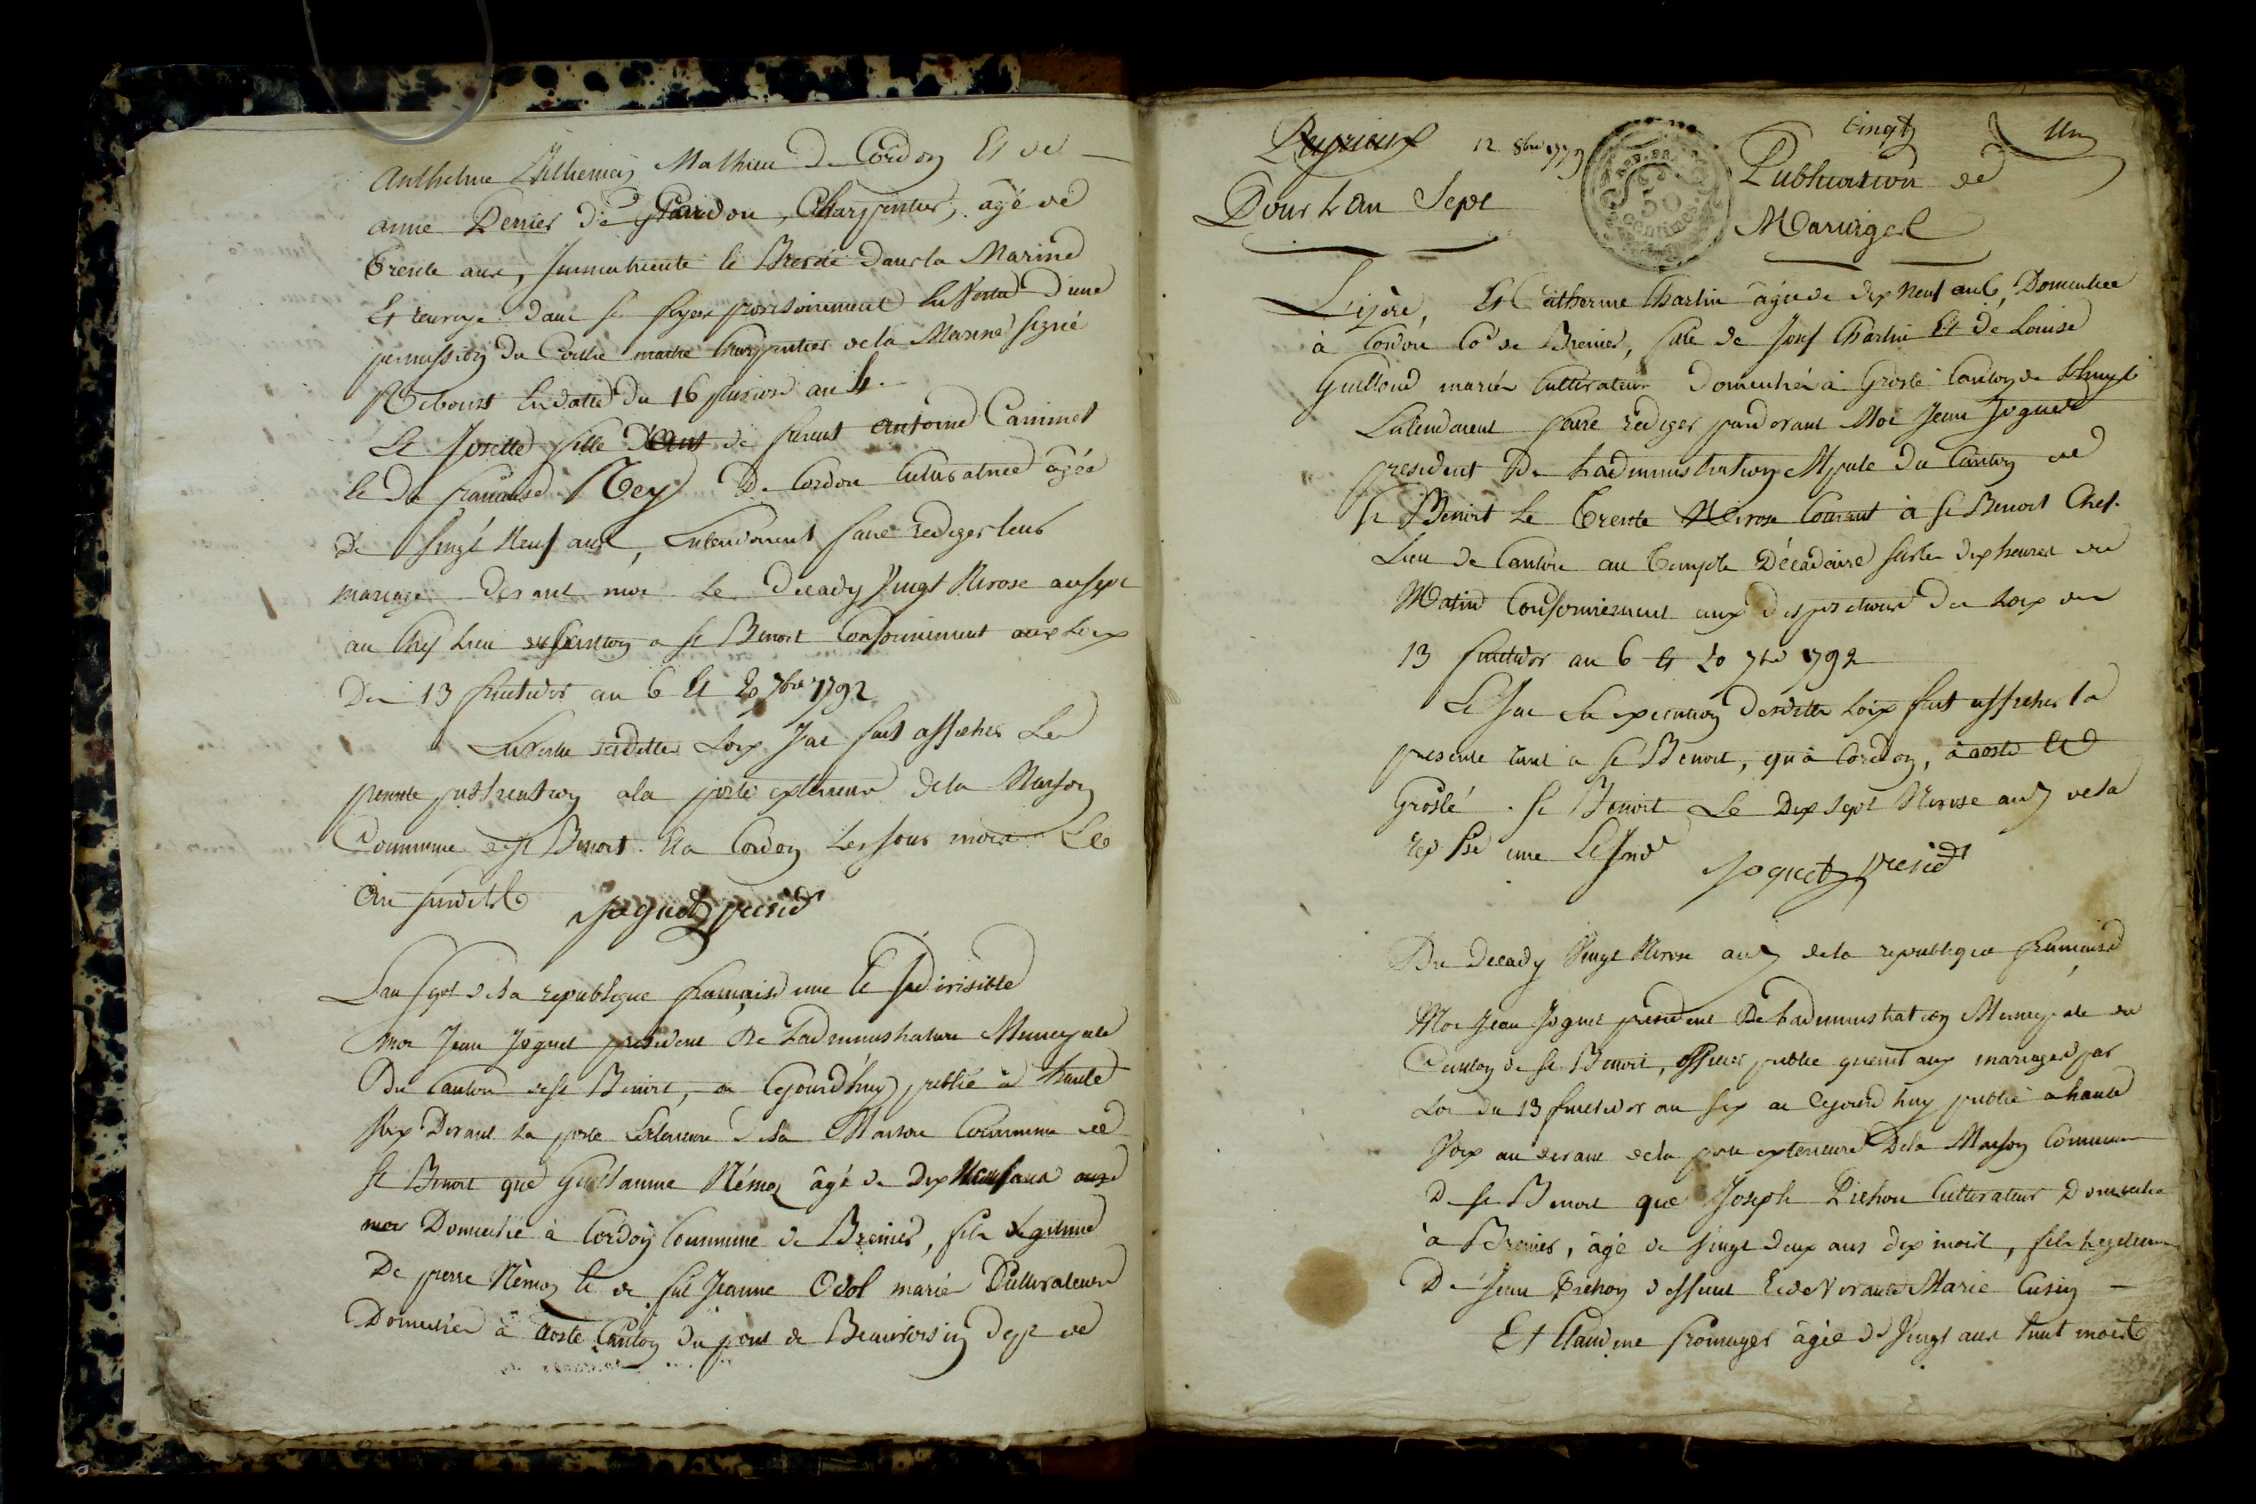 Anthelme Mathieu de Cordon Et de
anne Perrier de Cordon, Charpentier, âgé de
trente ans, le Brevté dans la Marine
Et dans provisoirement En Vertu d'une
permission du maitre Charpentier de la Marine signé
En datte du 16 an 4
Et Josette fille d'Ant de feu antoine Caminet
Et De francoise Rey De Cordon Cultivatrice âgée
De Vingt Neuf ans, Entendoivent faire rediger leur
mariage devant moi Le decady Vingt Nivose an sept
au Chef Lieu de Canton a St Benoit Conformement aux Loix
Du 13 fructidor an 6 Et 20 7bre 1792
En Vertu desdittes Loix J'ai fait afficher La
presente publication a la porte exterieure de la Maison
Commune de St Benoit Et a Cordon Les jour mois Et
An susdits Joguet presidt
L'an sept de la republique francaise une Et Indivisible
moi Jean Joguet president De L'administration Municipale
Du Canton de St Benoit, ai Cejourd'huy publié à haute
Voix Devant la porte Exterieure de la Maison Commune de
St Benoit que Guillaume Némoz âgé de Dix Neuf ans onze
mois Domicilié à Cordon Commune de Brenier, fils Legitime
De pierre Némoz Et de fue Jeanne Odol mariés Cultivateurs
Domiciliés à Aoste Canton du pont de Beauvoisin dept de
12 8bre 1779
vingt Un
Pour L'an Sept
REP. FR.
50
centimes
Publication de
Mariages
L'izère, Et Catherine Charlin âgée de dix Neuf ans, Domiciliée
à Cordon Cne de Brenier, fille de Josef Charlin Et de Louise
Guilloud mariés Cultivateurs Domiciliés à Groslé Canton de Lhuys
Entendoivent faire rediger pardevant Moi Jean Joguet
president De L'administration Mpale du Canton de
St Benoit Le Trente Nivose Courant à St Benoit Chef
Lieu de Canton au Temple Décadaire sur les dix heures du
Matin Conformément aux dispositions des Loix du
13 fructidor an 6 Et 20 7bre 1792
Et J'ai En execution desdittes Loix fait afficher la
presente tant a St Benoit, qu'à Cordon, à aoste Et
Groslé. St Benoit Le Dix sept Nivose an 7 de la
rep fse une Et Indle Joguet presidt
Du Decady Vingt Nivose an 7 de la republique francaise
Moi Jean Joguet president De L'administration Municipale du
Canton de St Benoit, officier public quent aux mariages par
Loi du 13 fructidor an six ai Cejourd'huy publié a haute
Voix au devant de la porte exterieure De la Maison Commune
De St Benoit que Joseph Pichon Cultivateur Domicilié
à Brenier, âgé de Vingt deux ans dix mois, fils Legitime
De Jean Pichon deffunt Et de Vivante Marie Cusin
Et Claudine fromager âgée de Vingt ans huit mois